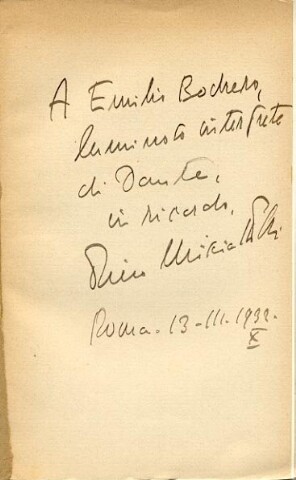 A Emilio Bodrero,
luminoso interprete
di Dante,
in ricordo,
Roma - 13-III. 1932.
X